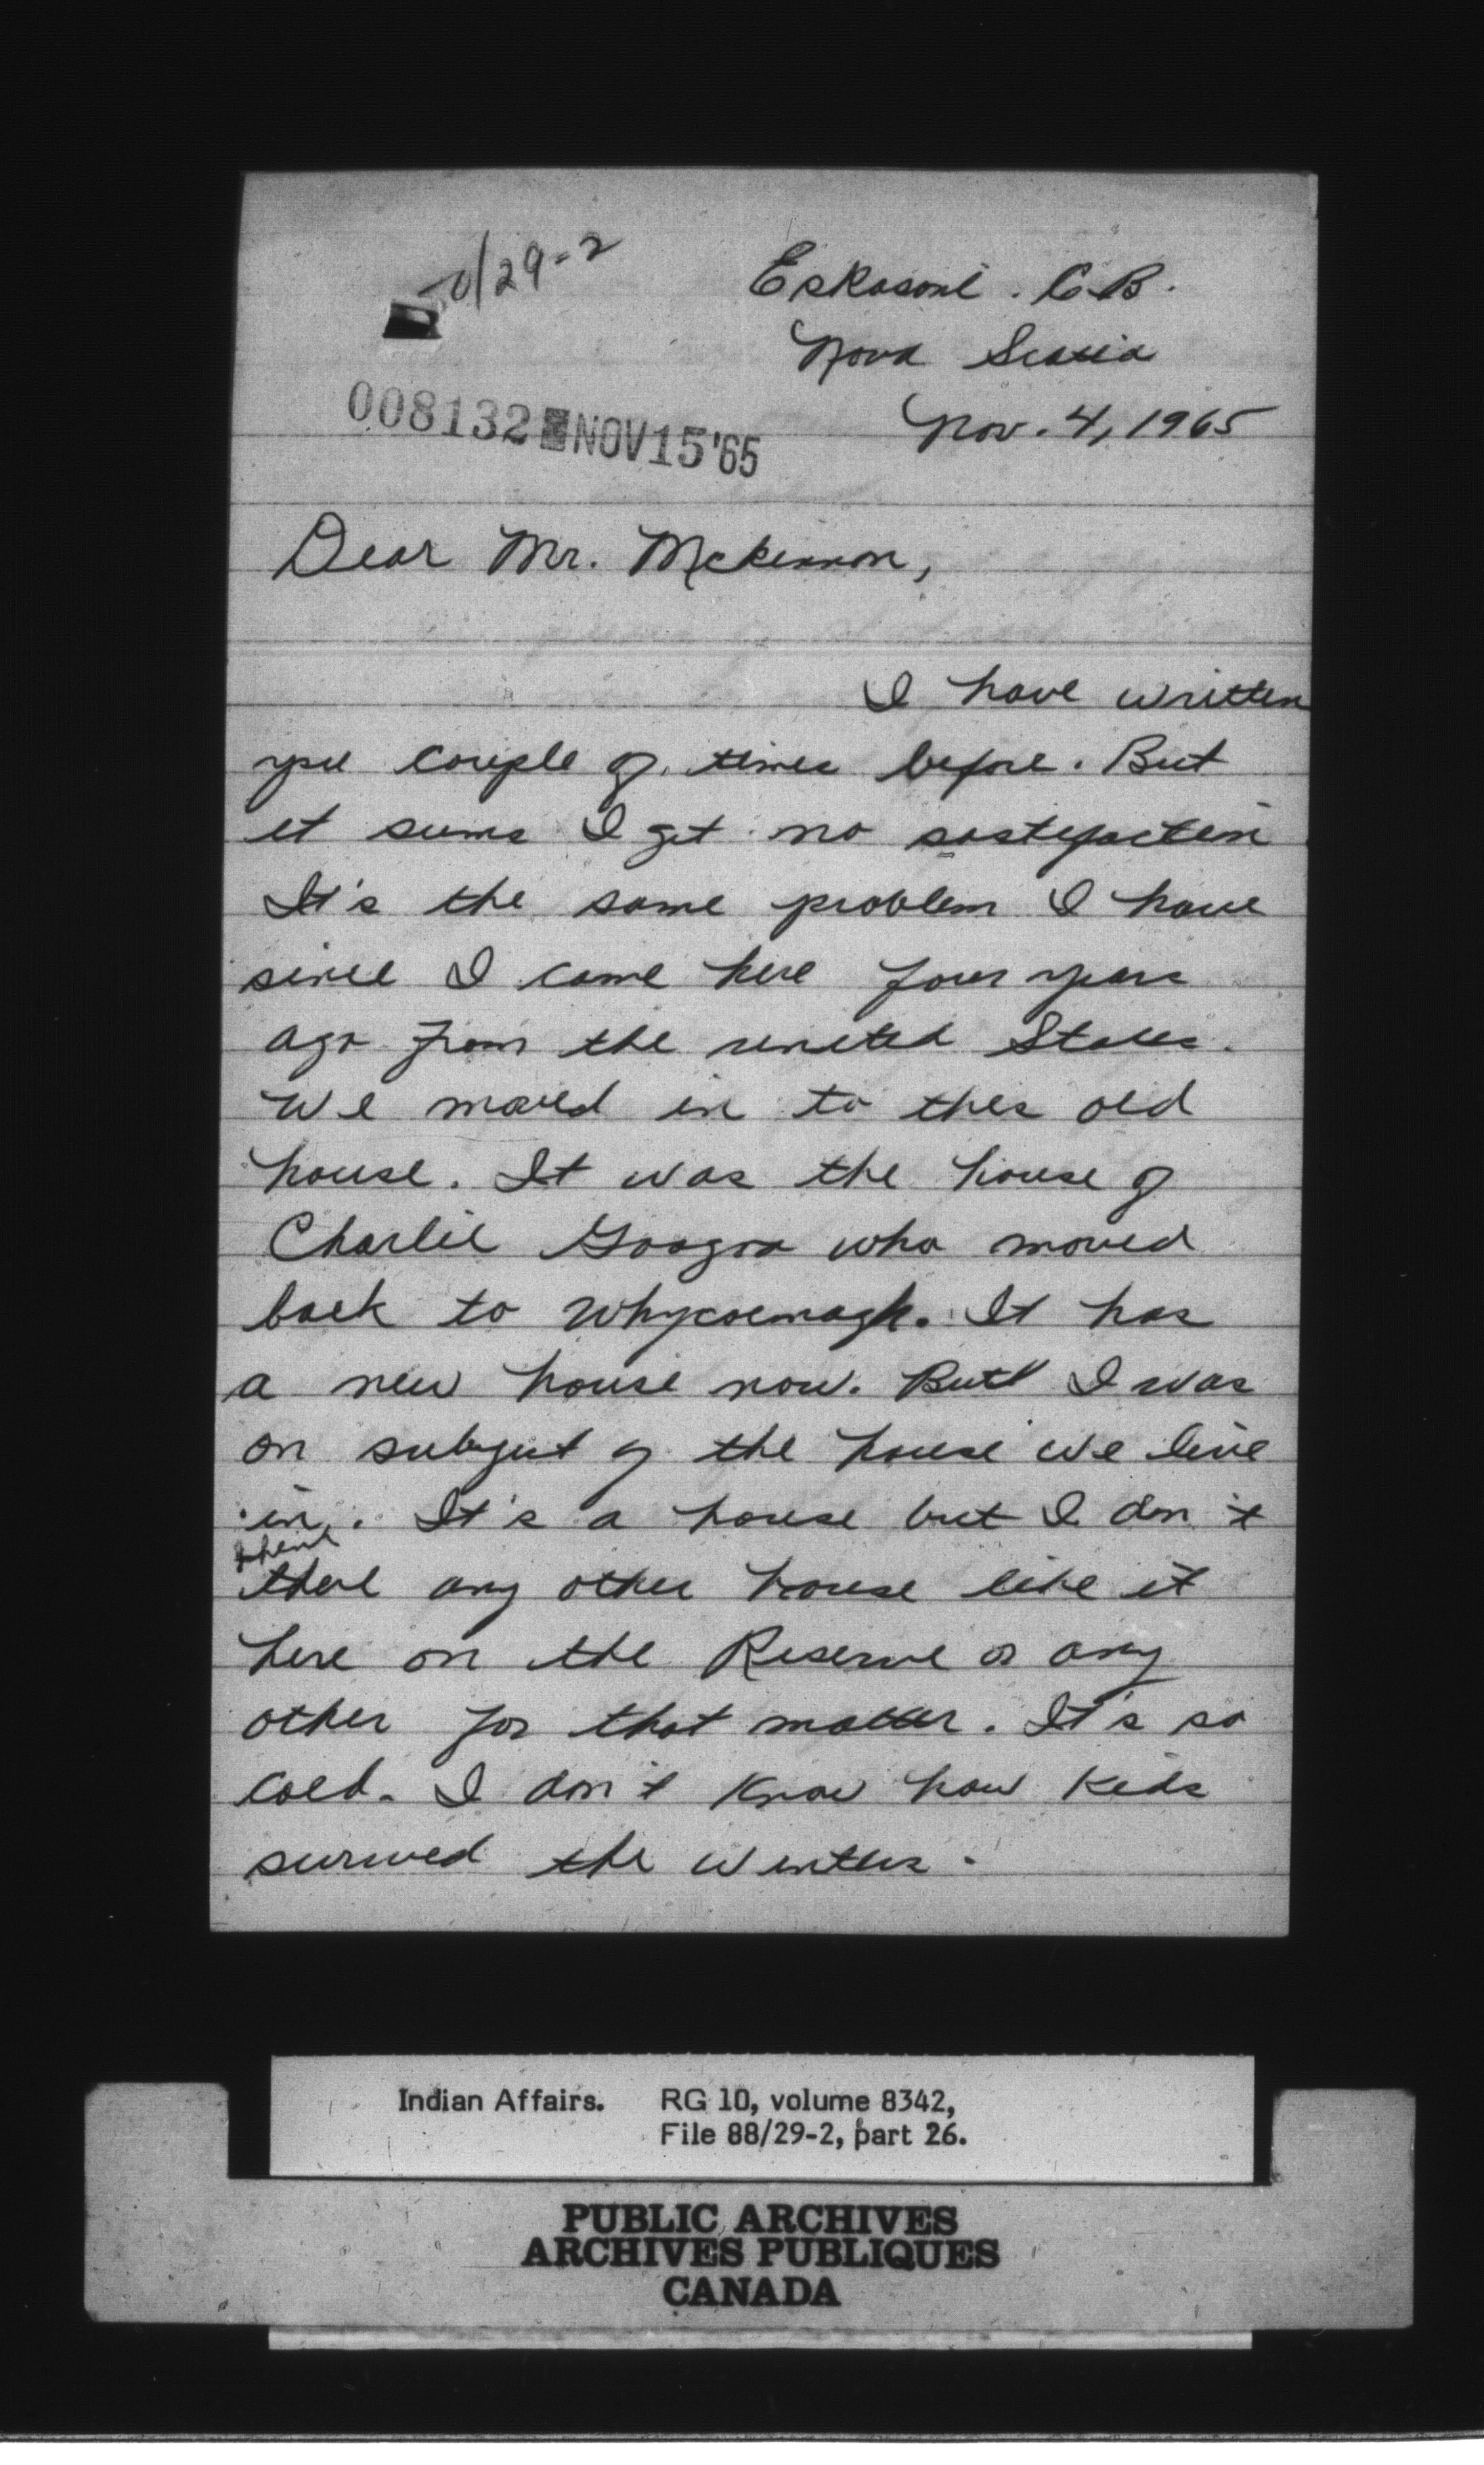 0/29-2
Eskasoni. C.B.
Nova Scotia
008132 NOV 15 '65
Nov. 4, 1965
Dear Mr. McKinnon,
I have written
you couple of times before. But
it seems I get no sastefaction
It's the same problem I have
since I came here four years
ago from the united States.
We moved in to this old
house. It was the house of
Charlie Googoo who moved
back to Whycocmagh. It has
a new house now. But I was
on subject of the house we live
in. It's a house but I don't
think
there any other house like it
here on the Reserve or any
other for that matter. It's so
cold. I don't know how kids
survived the winters.
Indian Affairs. RG 10, volume 8342,
File 88/29-2, part 26.
PUBLIC ARCHIVES
ARCHIVES PUBLIQUES
CANADA